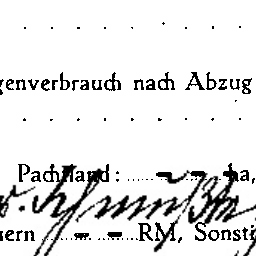 genverbrauch nach Abzug
Pachtland: – – ha,
ern – – RM, Sonsti